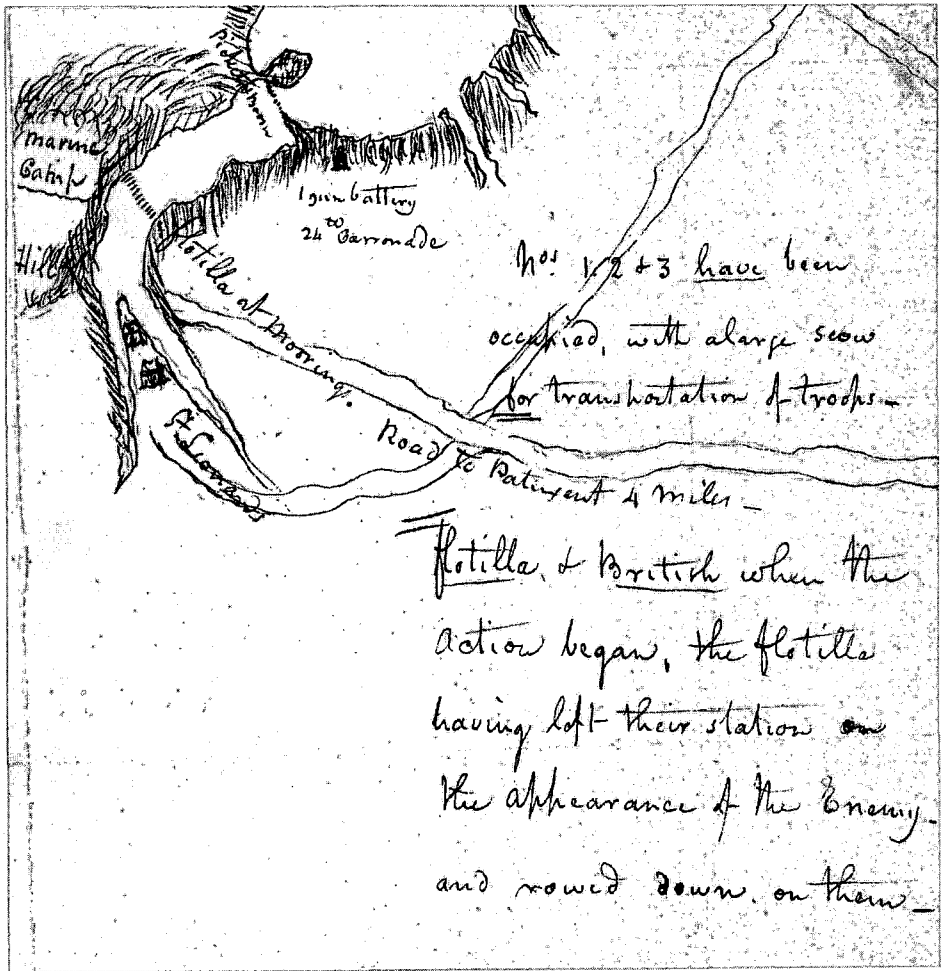 marine
Camp
Hill
1 gun battery
to
24 Carronade
flotilla at mooring.
St Leonards
Nos 1. 2 & 3 have been
occupied, with a large scow
for transportation of troops -
Road to Patuxent 4 miles -
flotilla, & British when the
action began, the flotilla
having left their station on
the appearance of the Enemy -
and rowed down, on them -